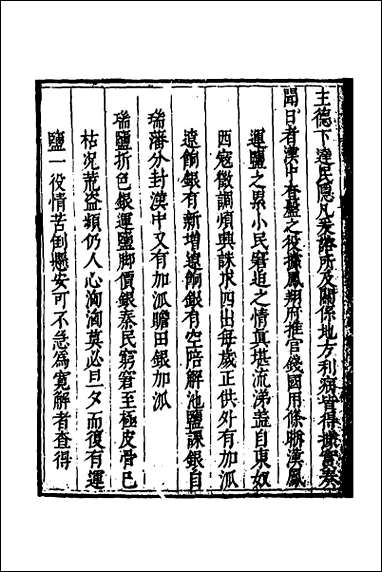 主德下達民隱凡爰諮所及關係地方利病皆得據實奏
聞日者漢中春鹽之役據鳳翔府推官錢國用條聯漢鳳
運鹽之累小民窘迫之情真堪流涕蓋自東奴
西寇徵調煩興誅求四出每歲正供外有加派
遼餉銀有新增遼餉銀有空陪解池鹽課銀自
瑞藩分封漢中又有加派贍田銀加派
瑞鹽折色銀運鹽脚價銀秦民窮窘至極皮骨已
枯况荒盜頻仍人心洶洶莫必旦夕而復有運
鹽一役情苦倒懸安可不急為寬解者查得